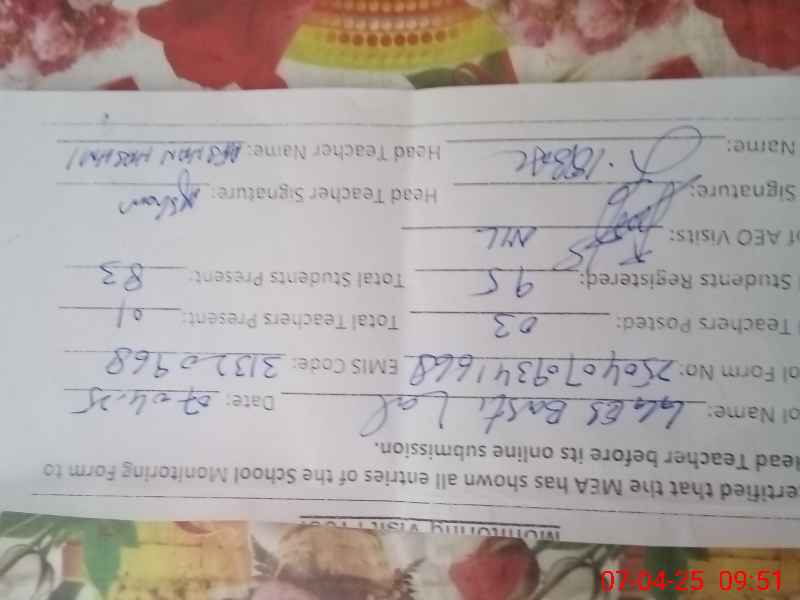 Monitoring Visit Proof
ertified that the MEA has shown all entries of the School Monitoring Form to
Head Teacher before its online submission.
ol Name: GGES Basti Lal Date: 07.04.25
ol Form No: 250407093416 68 EMIS Code: 31320968
Teachers Posted: 03 Total Teachers Present: 01
Students Registered: 95 Total Students Present: 83
of AEO Visits: NIL
Signature: Head Teacher Signature:
Name: Head Teacher Name:
07-04-25 09:51